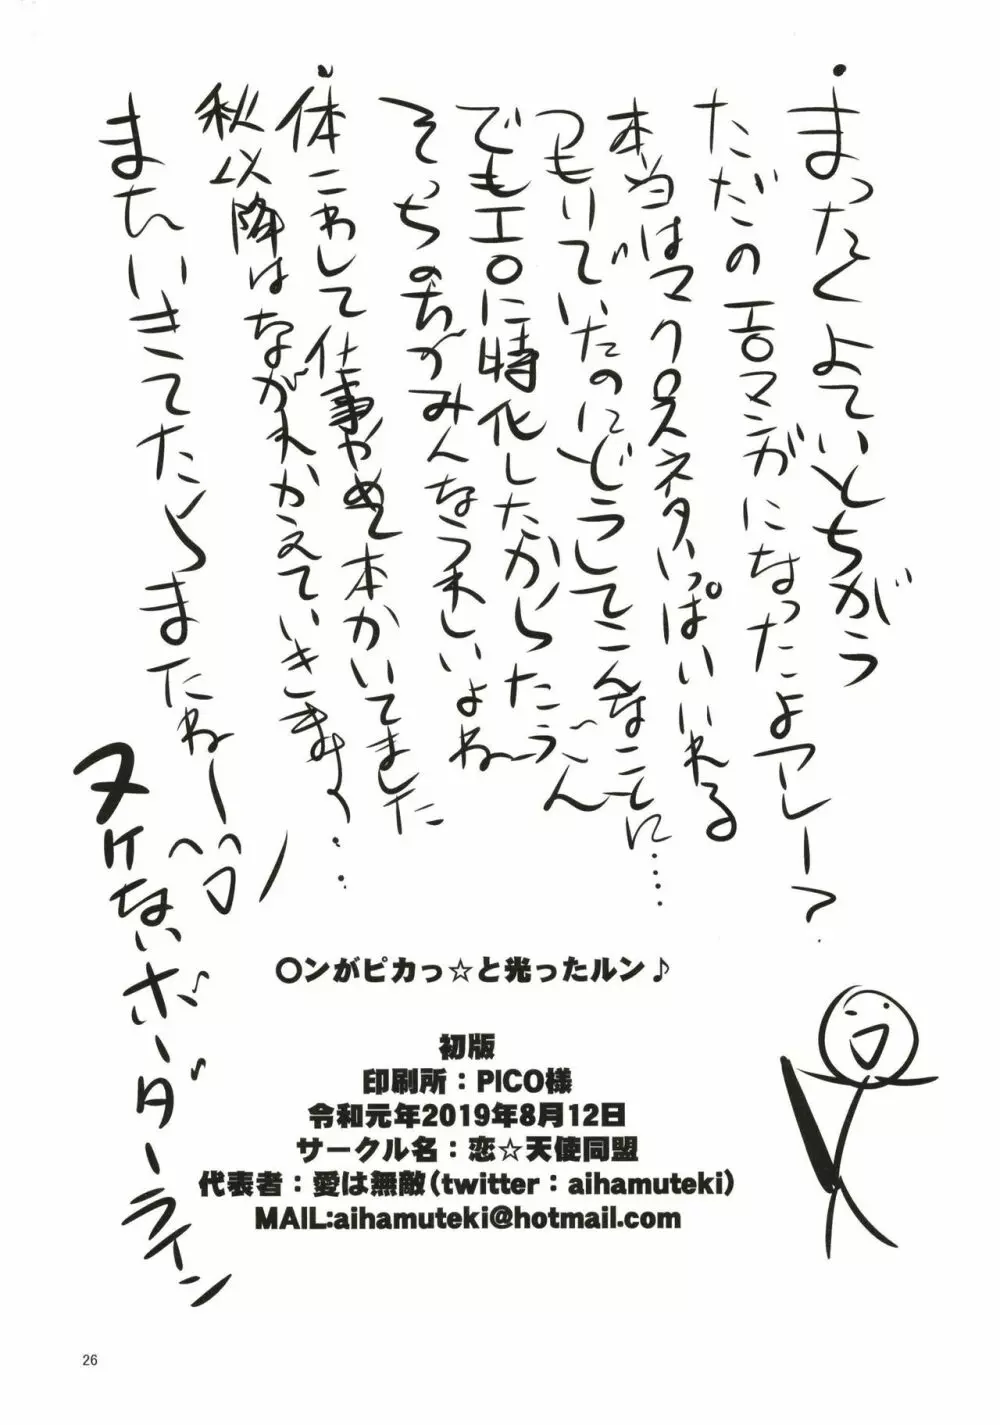 ・まったくよていとちがう
ただのエロマンガになったよアレー?
本当はマクロスネタいっぱいいれる
つもりでいたのにどうしてこんなことに……
でもエロに特化したからたぶん
そっちのがみんなうれしいよねー
・体こわして仕事やめて本かいてました
秋以降はながれかえていきます…
またいきてたらまたねー
ヌケないボーダーライン
〇ンがピカっ☆と光ったルン♪
初版
印刷所：PICO様
令和元年2019年8月12日
サークル名：恋☆天使同盟
代表者：愛は無敵(twitter：aihamuteki)
MAIL:aihamuteki@hotmail.com
26